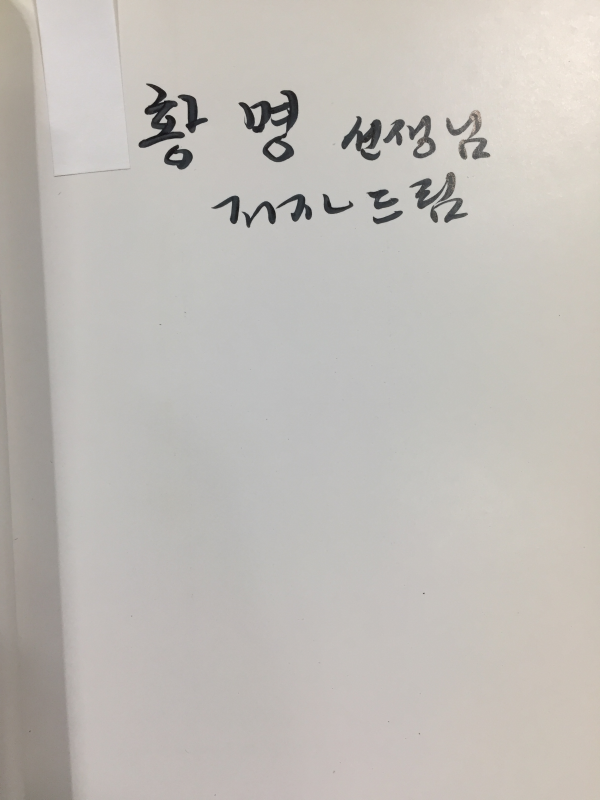 황 명 선생님
저자 드림